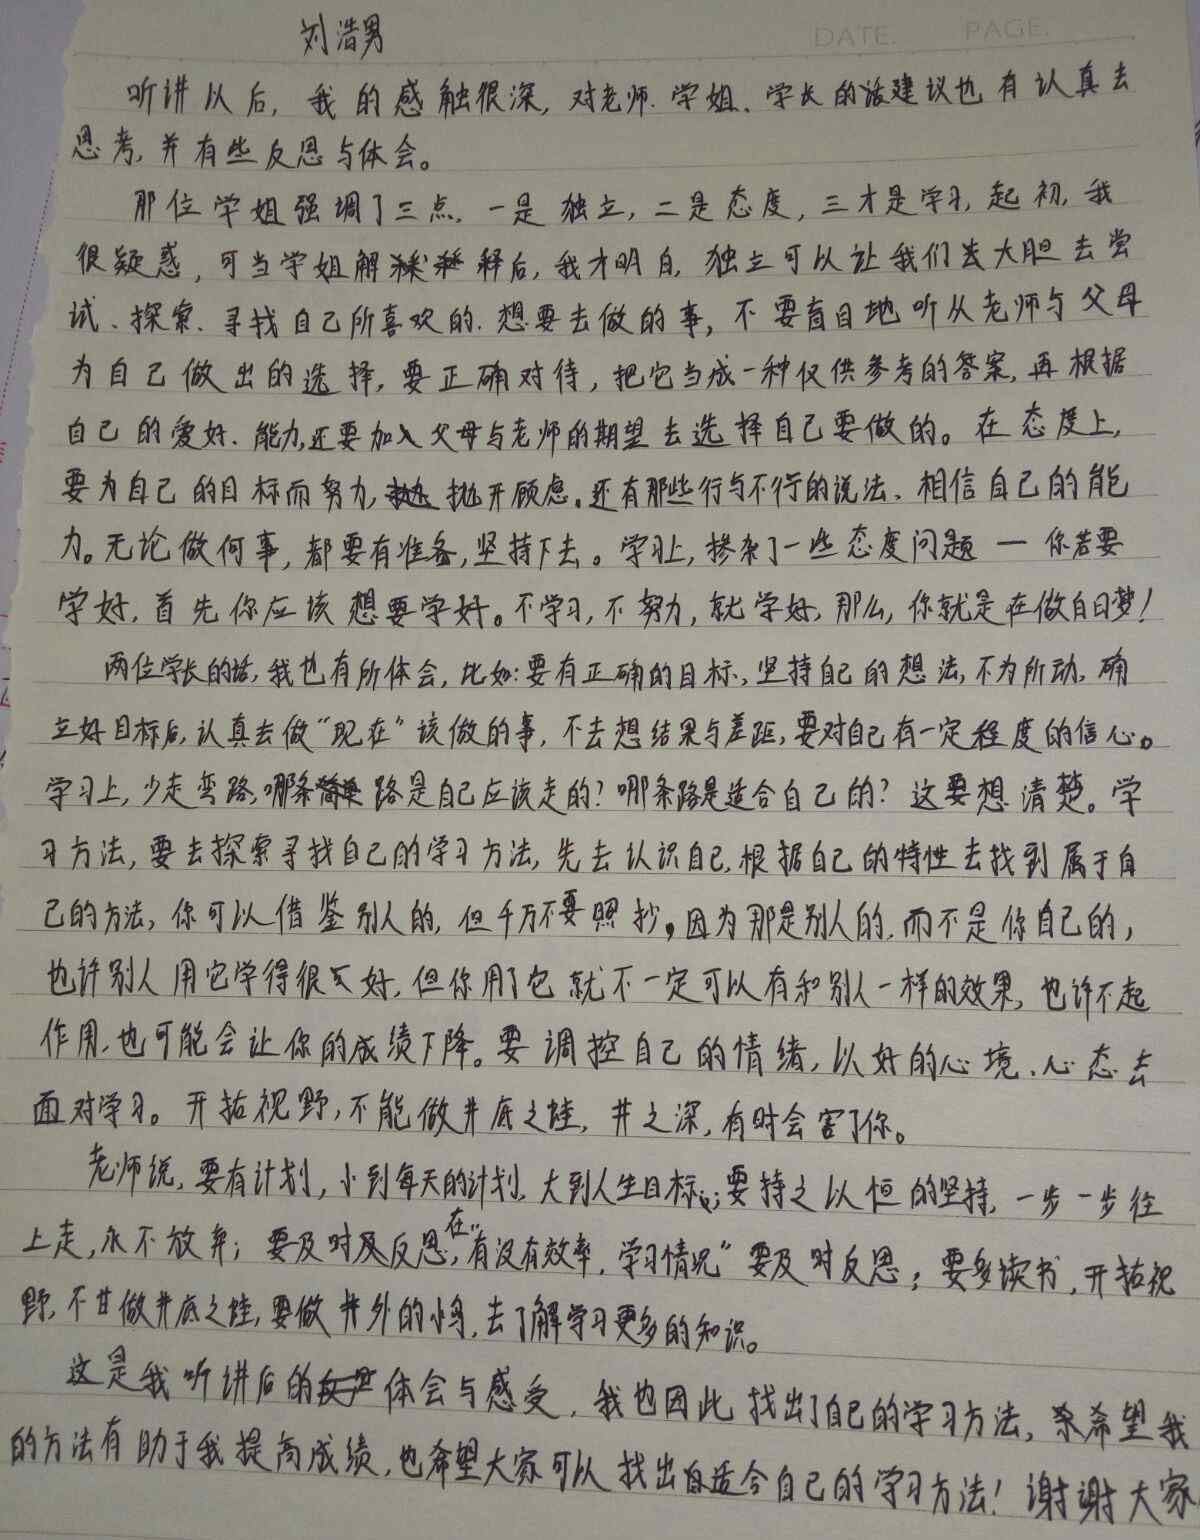 刘浩男
DATE. PAGE.
听讲以后，我的感触很深，对老师、学姐、学长的话建议也有认真去
思考，并有些反思与体会。
那位学姐强调了三点，一是独立，二是态度，三才是学习，起初，我
很疑惑，可当学姐解释后，我才明白，独立可以让我们去大胆去尝
试、探索、寻找自己所喜欢的、想要去做的事，不要盲目地听从老师与父母
为自己做出的选择，要正确对待，把它当成一种仅供参考的答案，再根据
自己的爱好、能力，还要加入父母与老师的期望去选择自己要做的。在态度上，
要为自己的目标而努力，抛开顾虑。还有那些行与不行的说法、相信自己的能
力。无论做何事，都要有准备，坚持下去。学习上，掺杂了一些态度问题 — 你若要
学好，首先你应该想要学好。不学习，不努力，就学好，那么，你就是在做白日梦！
两位学长的话，我也有所体会，比如：要有正确的目标，坚持自己的想法，不为所动，确
立好目标后，认真去做“现在”该做的事，不去想结果与差距，要对自己有一定程度的信心。
学习上，少走弯路，哪条路是自己应该走的？哪条路是适合自己的？这要想清楚。学
习方法，要去探索寻找自己的学习方法，先去认识自己，根据自己的特性去找到属于自
己的方法，你可以借鉴别人的，但千万不要照抄，因为那是别人的，而不是你自己的，
也许别人用它学得很好，但你用了它就不一定可以有和别人一样的效果，也许不起
作用，也可能会让你的成绩下降。要调控自己的情绪，以好的心境、心态去
面对学习。开拓视野，不能做井底之蛙，井之深，有时会害了你。
老师说，要有计划，小到每天的计划，大到人生目标；要持之以恒的坚持，一步一步往
上走，永不放弃；要及时反思，在“有没有效率，学习情况”要及时反思；要多读书，开拓视
野，不甘做井底之蛙，要做井外的小鸟，去了解学习更多的知识。
这是我听讲后的体会与感受，我也因此找出了自己的学习方法，希望我
的方法有助于我提高成绩，也希望大家可以找出适合自己的学习方法！谢谢大家